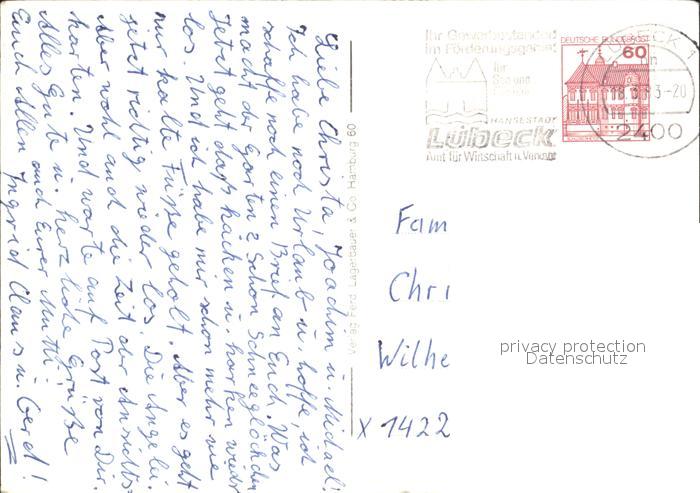 Liebe Christa, Joachim u. Michael!
Ich habe noch Urlaub u. hoffe, ich
schaffe noch einen Brief an Euch. Was
macht der Garten? Schon Schneeglöckchen
Jetzt geht daß hacken u. harken wieder
los. Und ich habe mir schon mehr wie
nur kalte Füße geholt. Aber es geht
jetzt richtig wieder los. Die Angelei.
Aber wohl auch die Zeit der Ansichts=
karten. Und warte auf Post von Dir.
Alles Gute u. herzliche Grüße
Euch Allen auch Eurer Mutti
Ingrid Claus u. Gerd!
Verlag Ferd. Lagerbauer & Co. Hamburg 60
Ihr Gewerbestandort
im Fördergebiet
HANSESTADT
Lübeck
Amt für Wirtschaft u. Verkehr
DEUTSCHE BUNDESPOST
60
LÜBECK 1
-20
2400
Fam
Chri
Wilhe
X 1422
privacy protection
Datenschutz